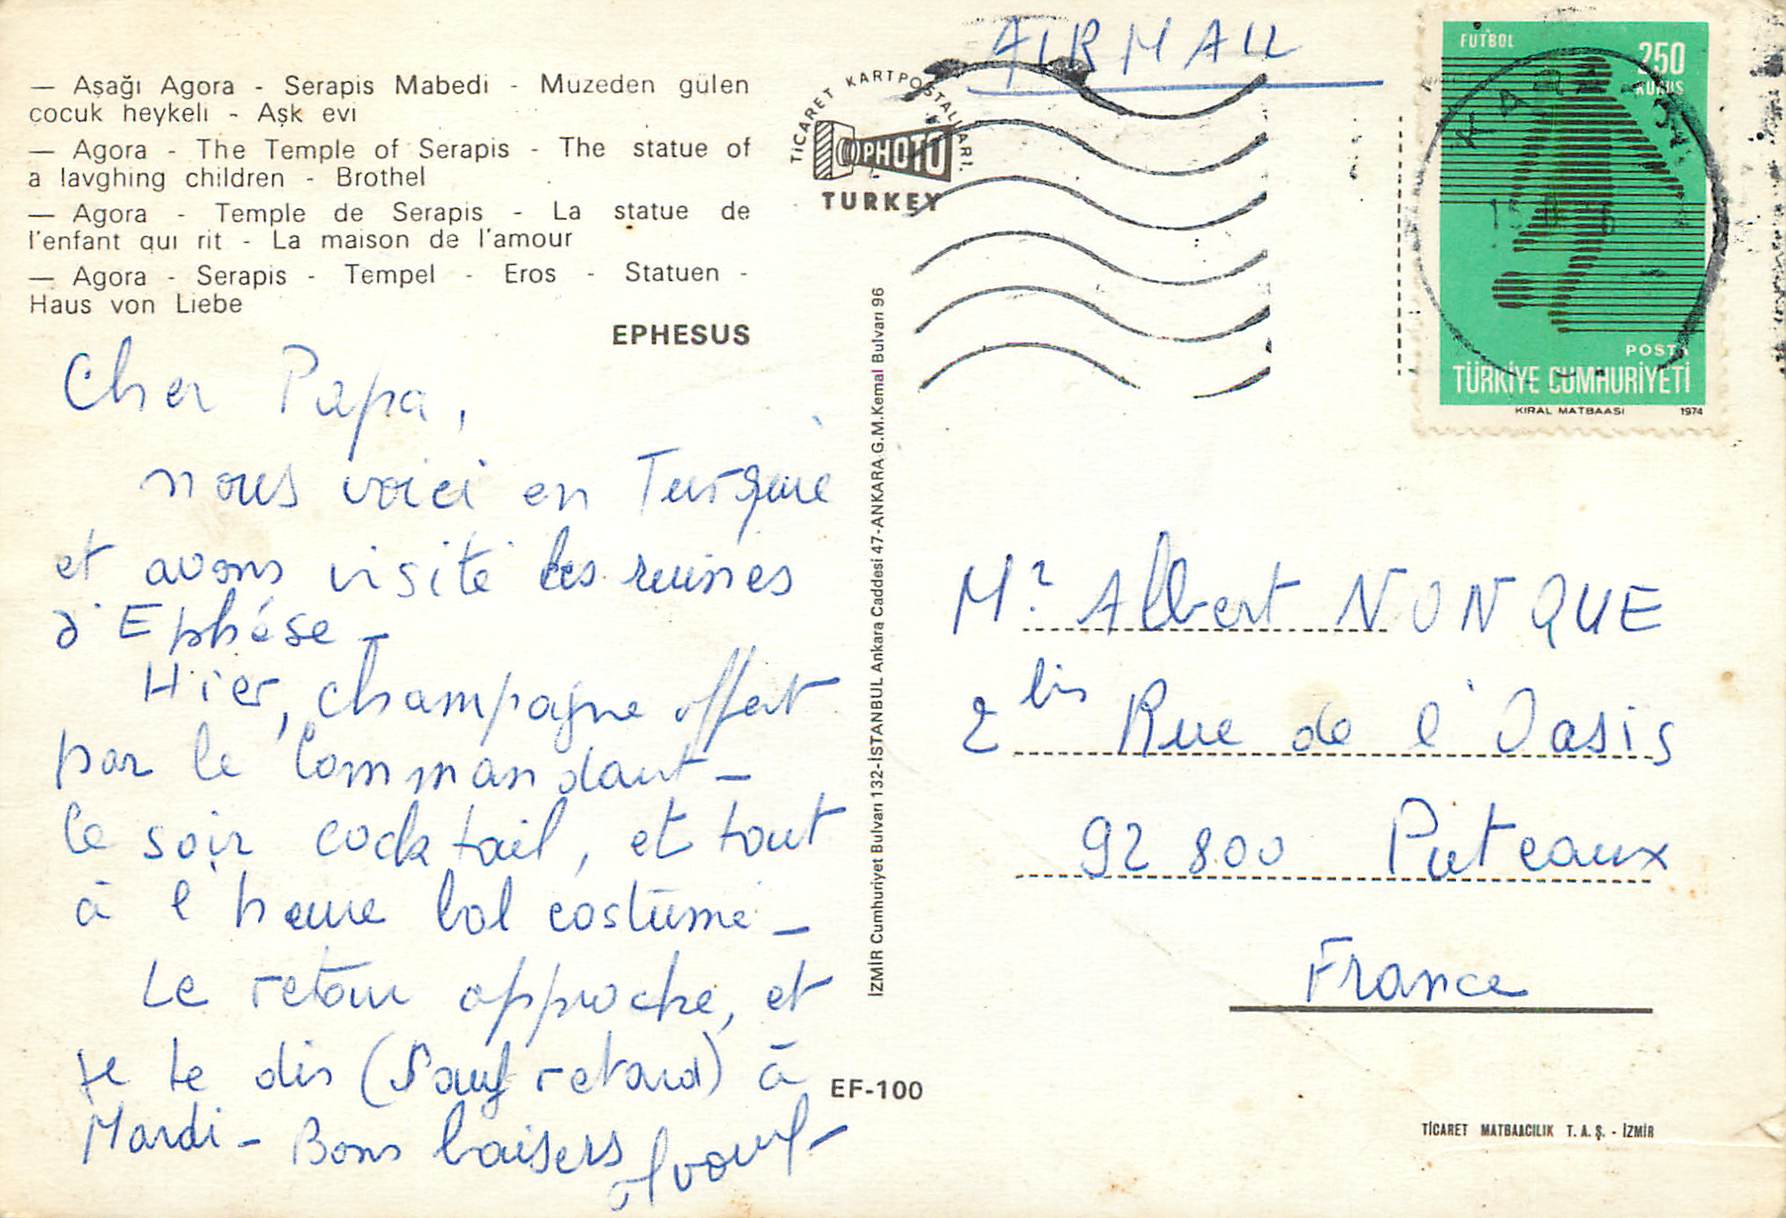 — Aşağı Agora - Serapis Mabedi - Muzeden gülen
çocuk heykeli - Aşk evi
— Agora - The Temple of Serapis - The statue of
a lavghing children - Brothel
— Agora - Temple de Serapis - La statue de
l'enfant qui rit - La maison de l'amour
— Agora - Serapis - Tempel - Eros - Statuen -
Haus von Liebe
EPHESUS
Cher Papa,
nous voici en Turquie
et avons visité les ruines
d'Ephèse -
Hier, champagne offert
par le Commandant -
Ce soir cocktail, et tout
à l'heure bal costumé -
Le retour approche, et
je te dis (sauf retard) à
Mardi - Bons baisers
EF-100
İZMİR Cumhuriyet Bulvarı 132-İSTANBUL Ankara Caddesi 47-ANKARA G.M.Kemal Bulvarı 96
TİCARET KARTPOSTALLARI
PHOTO
TURKEY
AIR MAIL
FUTBOL
250
KURUŞ
POSTA
TÜRKİYE CUMHURİYETİ
KIRAL MATBAASI 1974
Mr Albert NONQUE
2 bis Rue de l'Oasis
92 800 Puteaux
France
TİCARET MATBAACILIK T. A. Ş. - İZMİR